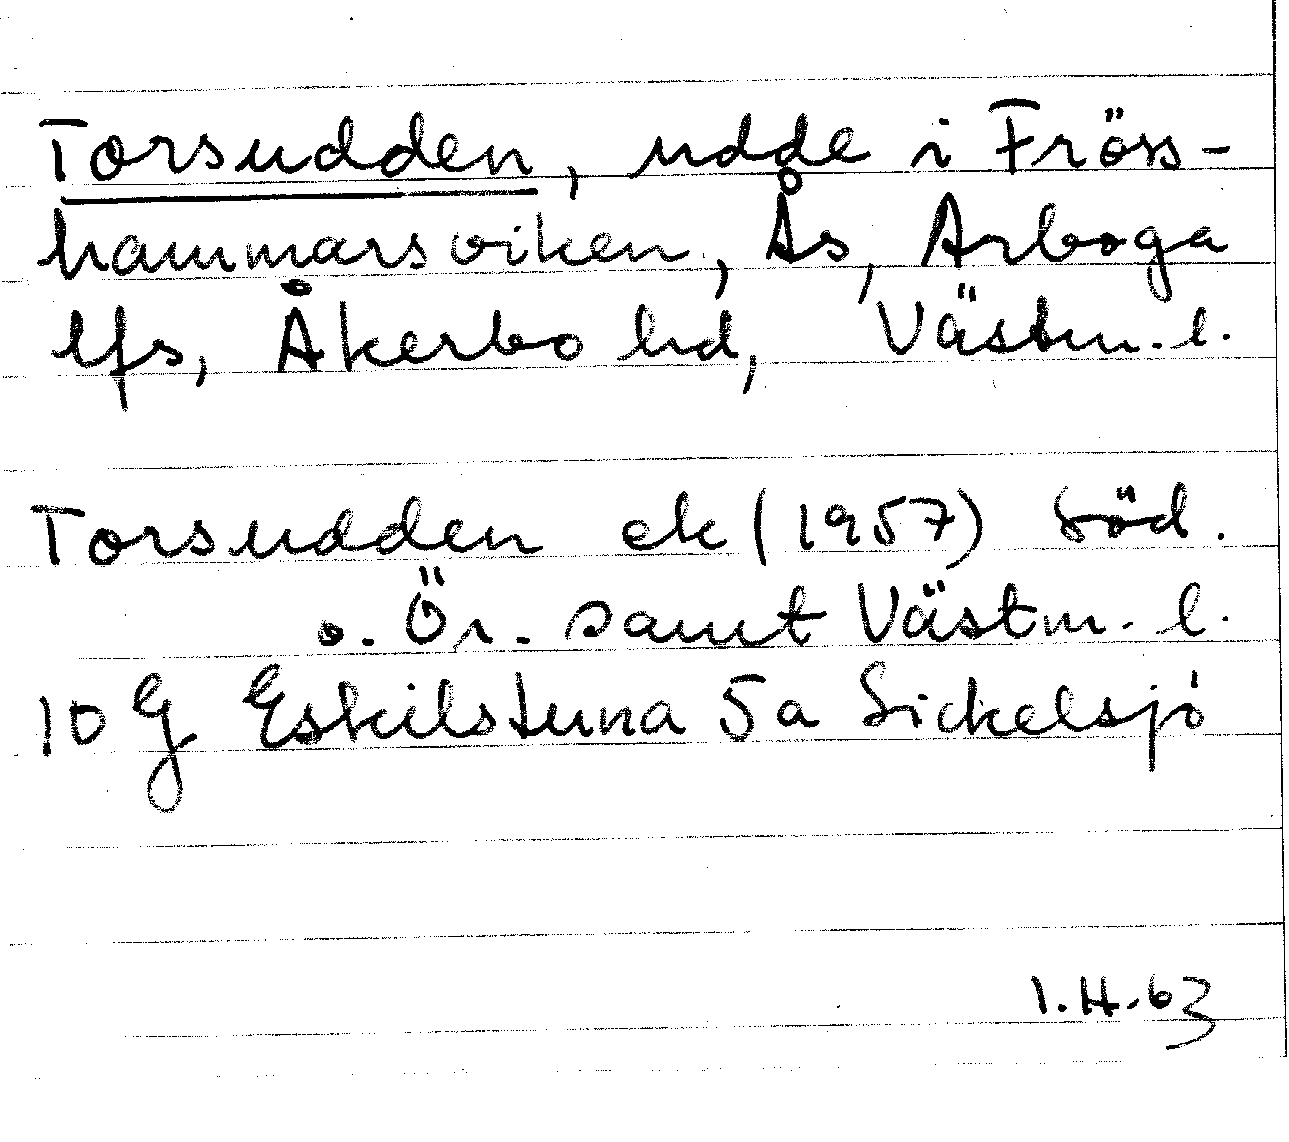 Torsudden, udde i Fröss-
hammarsviken, Ås, Arboga
lfs, Åkerbo hd, Västm. l.
Torsudden ek (1957) Söd.
o. Ör. samt Västm. l.
10 G Eskilstuna 5a Sickelsjö
I.H.63